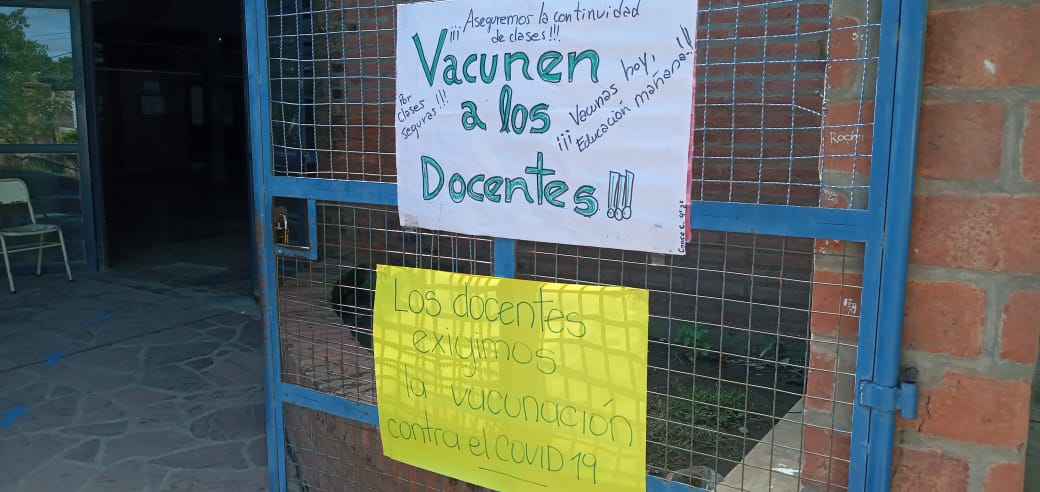 ¡¡¡ Aseguremos la continuidad
de clases!!!
Vacunen
a los
Docentes!!!
Por
clases
seguras!!!
¡¡¡ Vacunas hoy,
Educación mañana!!!
Rochi
Los docentes
exigimos
la vacunación
contra el COVID 19